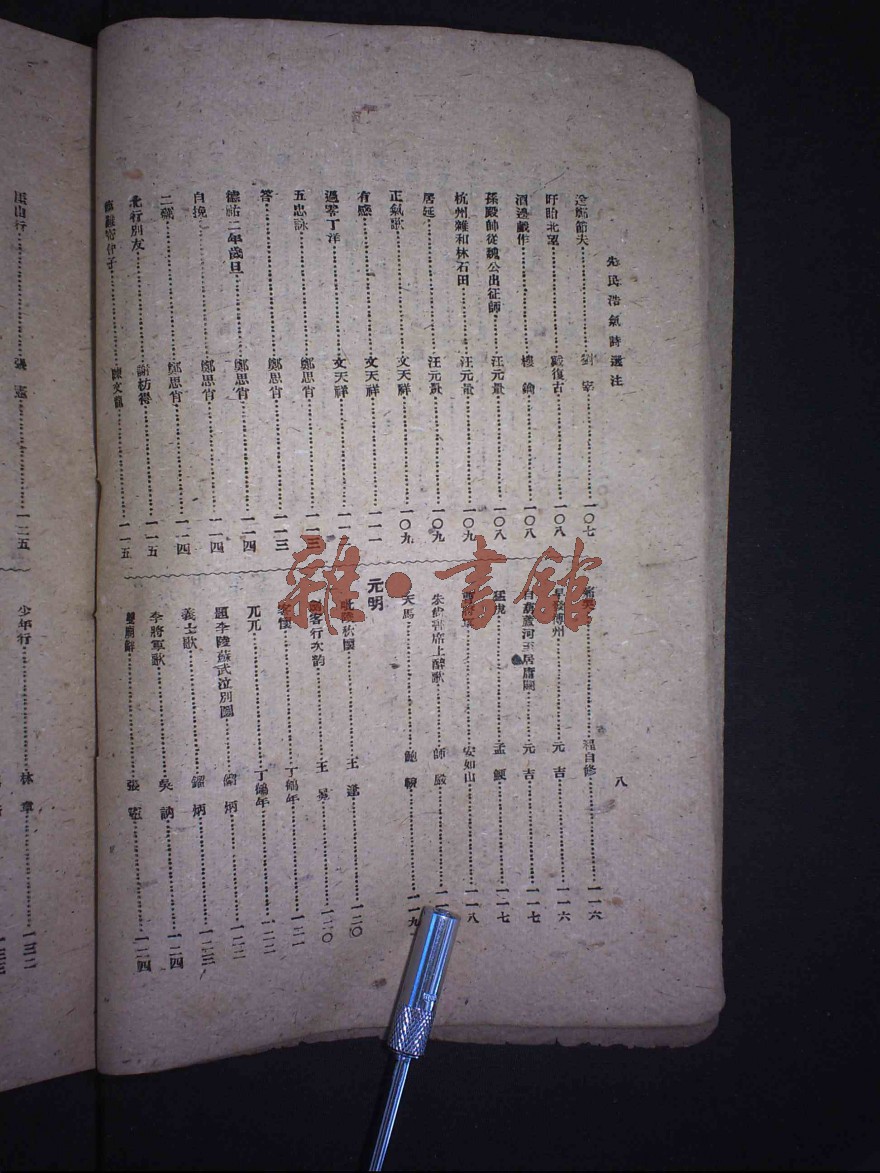 先民浩氣詩選注
八
劉宰 一〇七
盱眙北望 戴復古 一〇八
酒邊戲作 樓鑰 一〇八
孫殿帥從魏公出征師 汪元量 一〇八
杭州雜和林石田 汪元量 一〇九
居延 汪元量 一〇九
正氣歌 文天祥 一〇九
有感 文天祥 一一一
過零丁洋 文天祥
五忠詠 鄭思肖 一一三
答 鄭思肖 一一三
德祐二年歲旦 鄭思肖 一一四
自挽 鄭思肖 一一四
二礪 鄭思肖 一一四
北行別友 謝枋得 一一五
陳文龍 一一五
程自修 一一六
早發博州 元吉 一一六
自葫蘆河至居庸關 元吉 一一七
猛虎 孟鯁 一一七
安如山 一一八
席上醉歌 師嚴
天馬 鮑輗 一一九
元明
王逢 一二〇
劍客行次韵 王冕 一二〇
客懷 丁鶴年 一二一
兀兀 丁鶴年 一二二
題李陵蘇武泣別圖 偰炳 一二二
義士歌 炳 一二三
李將軍歌 吳訥 一二四
雙廟辭 張憲 一二四
厓山行 張憲 一二五
少年行 林章 一三二
雜·書館